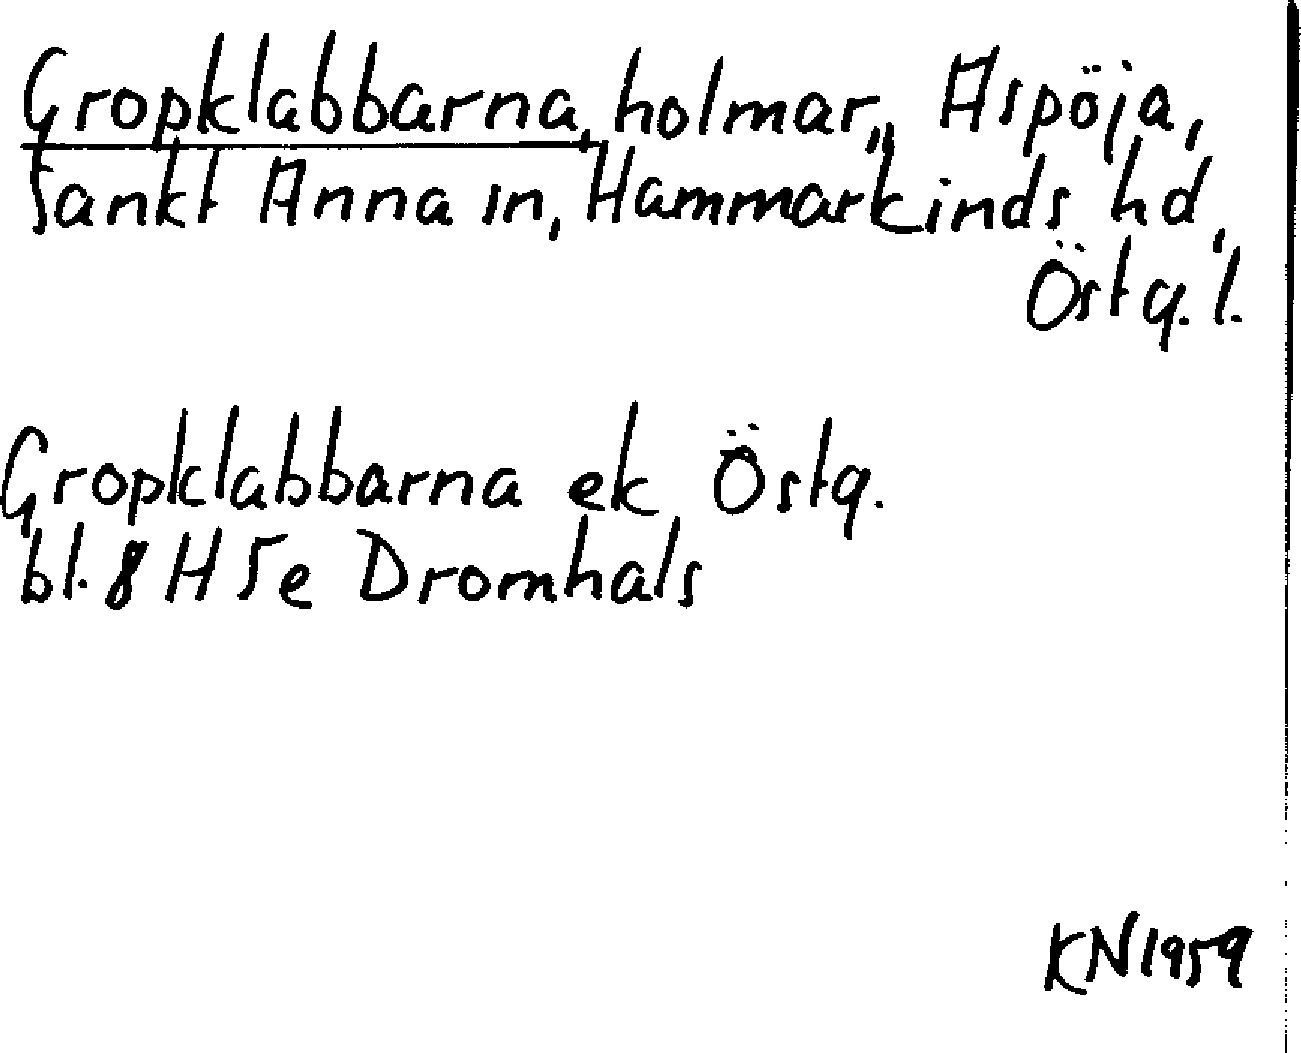 Gropklabbarna, holmar,, Aspöja,
Sankt Anna sn, Hammarkinds hd,
Östg. l.
Gropklabbarna ek Östg.
bl. 8 H 5e Dromhals
KN 1959